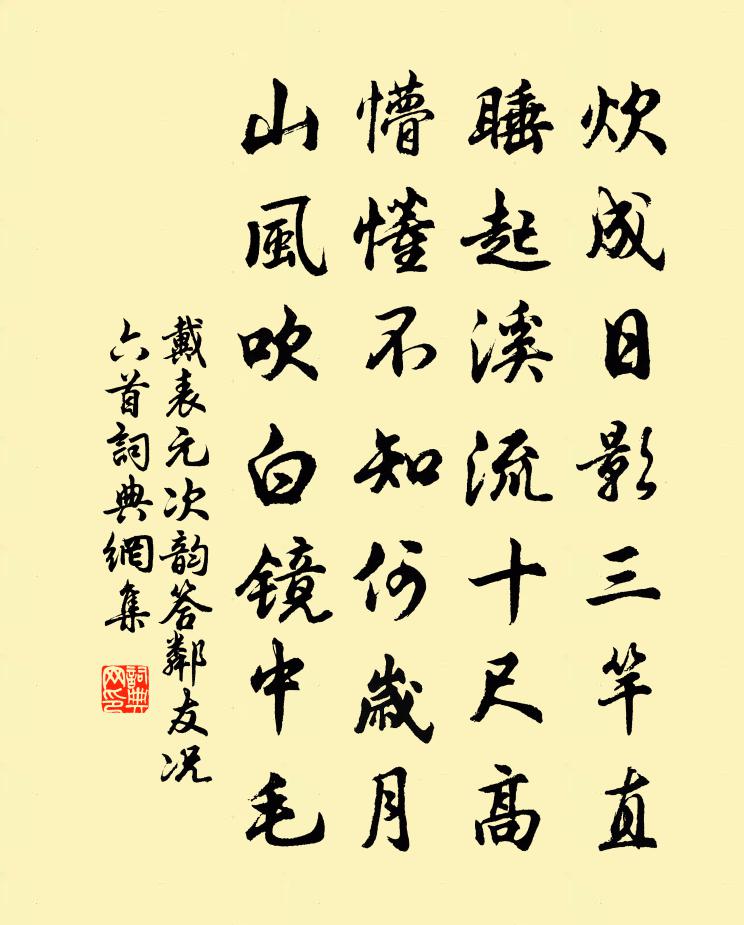 炊成日影三竿直
睡起溪流十尺高
懵懂不知何歲月
山風吹白镜中毛
戴表元次韵答鄰友况
六首詞典網集
詞典
网印